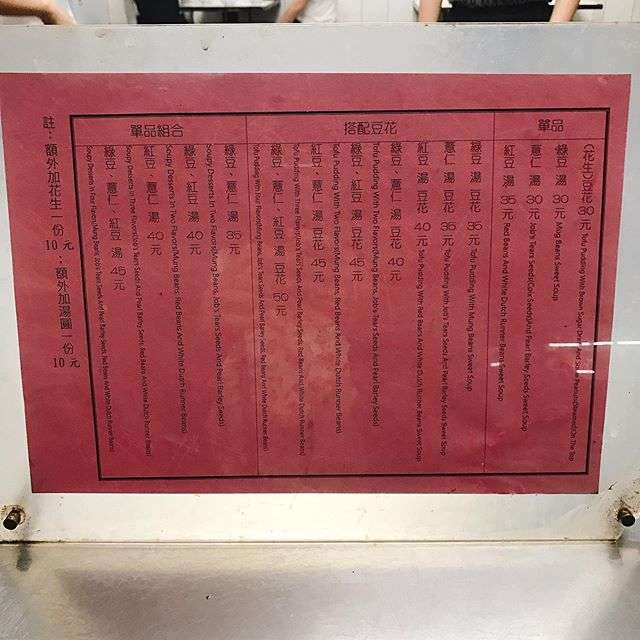 單品
(花生)豆花 30元 Tofu Pudding With Brown Sugar On The Top
綠豆 湯 30元 Mung Beans Sweet Soup
薏仁 湯 30元 Job's Tears Seeds(Coix Seeds)And Pearl Barley Seeds Sweet Soup
紅豆 湯 35元 Red Beans And White Dutch Runner Beans Sweet Soup
搭配豆花
綠豆 湯 豆花 35元 Tofu Pudding With Mung Beans Sweet Soup
薏仁 湯 豆花 35元 Tofu Pudding With Job's Tears Seeds And Pearl Barley Seeds Sweet Soup
紅豆 湯 豆花 40元 Tofu Pudding With Red Beans And White Dutch Runner Beans Sweet Soup
綠豆、薏仁 湯 豆花 40元
Tofu Pudding With Two Flavors(Mung Beans, Job's Tears Seeds And Pearl Barley Seeds)
綠豆、紅豆 湯 豆花 45元
Tofu Pudding With Two Flavors(Mung Beans, Red Beans And White Dutch Runner Beans)
紅豆、薏仁 湯 豆花 45元
Tofu Pudding With Three Flavors(Job's Tears Seeds And Pearl Barley Seeds, Red Beans And White Dutch Runner Beans)
綠豆、薏仁、紅豆 湯 豆花 50元
Tofu Pudding With Four Flavors(Mung Beans, Job's Tears Seeds And Pearl Barley Seeds, Red Beans And White Dutch Runner Beans)
單品組合
綠豆、薏仁 湯 35元
Soupy Desserts In Two Flavors(Mung Beans, Job's Tears Seeds And Pearl Barley Seeds)
綠豆、紅豆 湯 40元
Soupy Desserts In Two Flavors(Mung Beans, Red Beans And White Dutch Runner Beans)
紅豆、薏仁 湯 40元
Soupy Desserts In Three Flavors(Job's Tears Seeds And Pearl Barley Seeds, Red Beans And White Dutch Runner Beans)
綠豆、薏仁、紅豆 湯 45元
Soupy Desserts In Four Flavors(Mung Beans, Job's Tears Seeds And Pearl Barley Seeds, Red Beans And White Dutch Runner Beans)
註：額外加花生一份10元：額外加湯圓一份10元